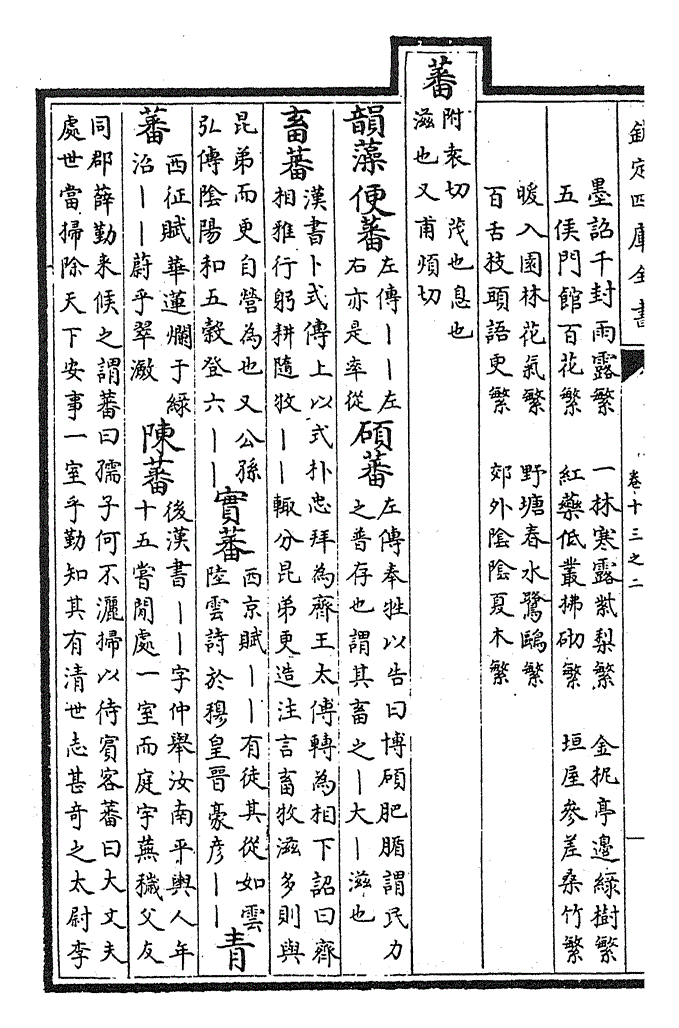 欽定四庫全書 卷十三之二
墨詔千封雨露繁 一林寒露紫梨繁 金柅亭邊綠樹繁
五侯門館百花繁 紅藥低叢拂砌繁 垣屋參差桑竹繁
暖入園林花氣繁 野塘春水鷺鷗繁
百舌枝頭語更繁 郊外陰陰夏木繁
蕃 附袁切茂也息也
滋也又甫煩切
韻藻便蕃 左傳丨丨左
右亦是率從
碩蕃 左傳奉牲以告曰博碩肥腯謂民力
之普存也謂其畜之丨大丨滋也
畜蕃 漢書卜式傳上以式朴忠拜為齊王太傅轉為相下詔曰齊
相雅行躬耕隨牧丨丨輒分昆弟更造注言畜牧滋多則與
昆弟而更自營為也又公孫
弘傳陰陽和五穀登六丨丨
實蕃 西京賦丨丨有徒其從如雲
陸雲詩於穆皇晉豪彦丨丨
青
蕃 西征賦華蓮爛于綠
沼丨丨蔚乎翠瀲
陳蕃 後漢書丨丨字仲舉汝南平輿人年
十五嘗閒處一室而庭宇蕪穢父友
同郡薛勤來候之謂蕃曰孺子何不灑掃以待賓客蕃曰大丈夫
處世當掃除天下安事一室乎勤知其有清世志甚奇之太尉李